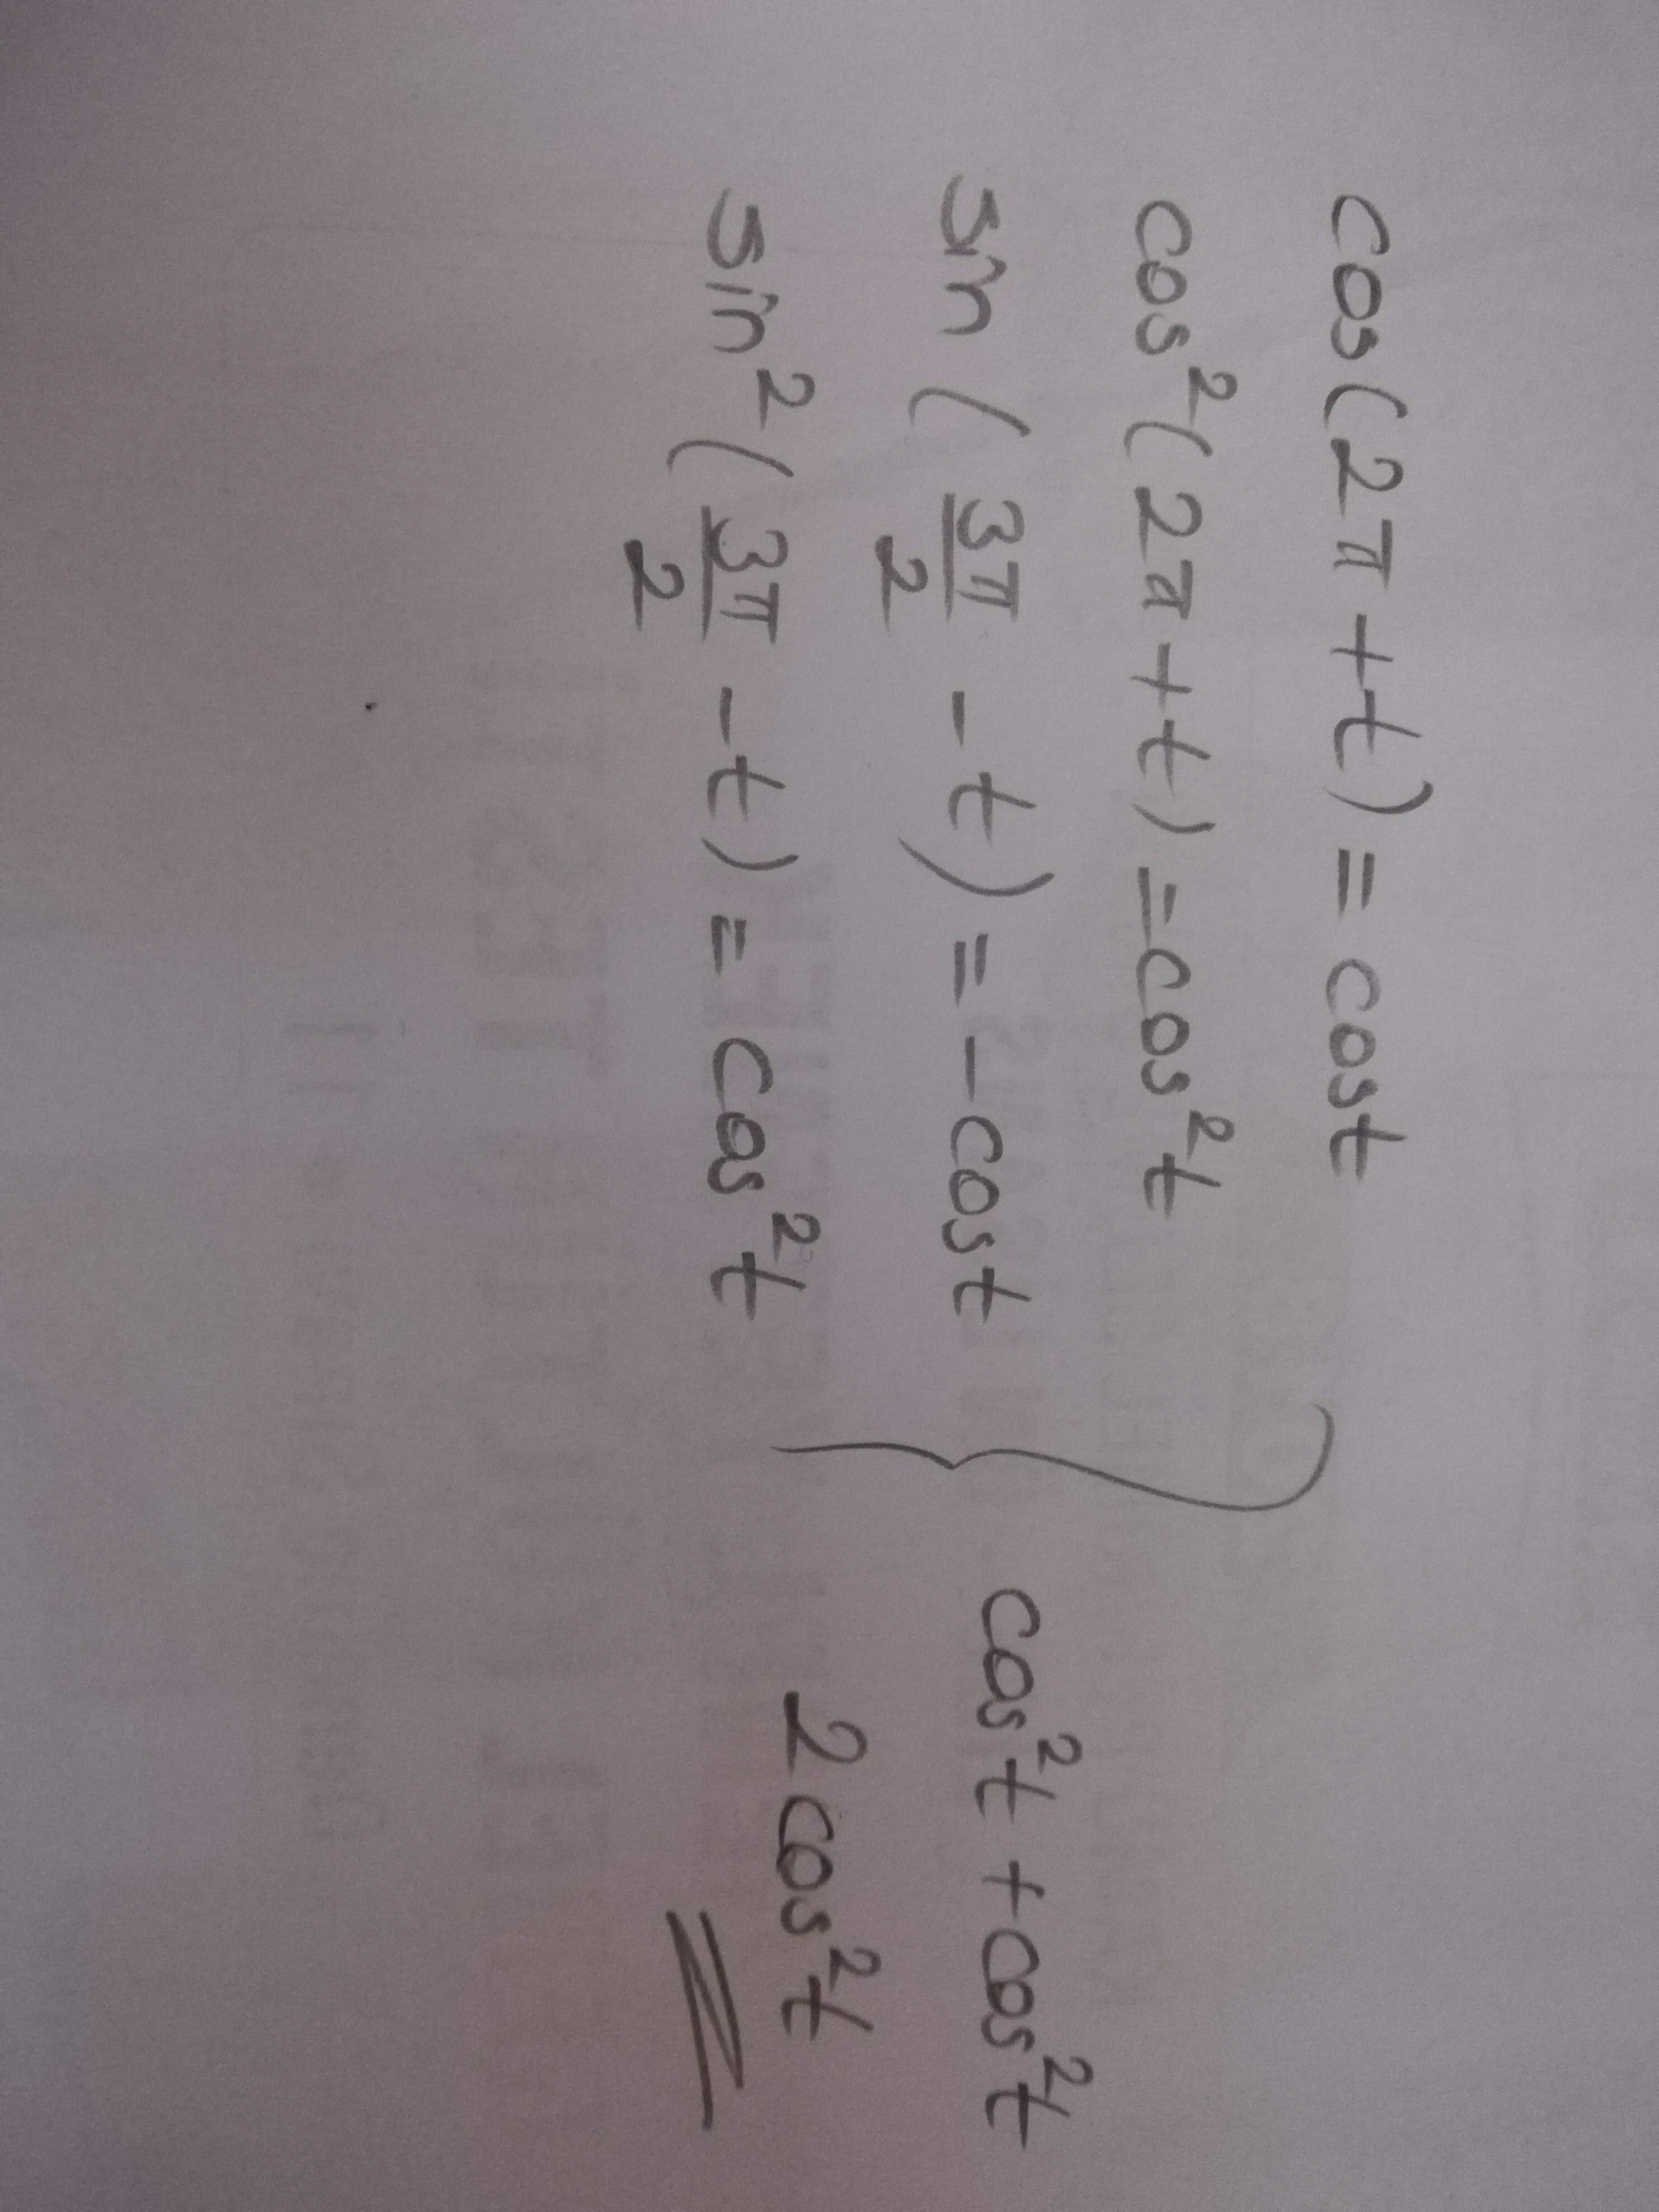 cos(2π+t) = cost
cos²(2π+t) = cos²t
sin(3π/2 - t) = -cost
sin²(3π/2 - t) = cos²t
cos²t + cos²t
2cos²t